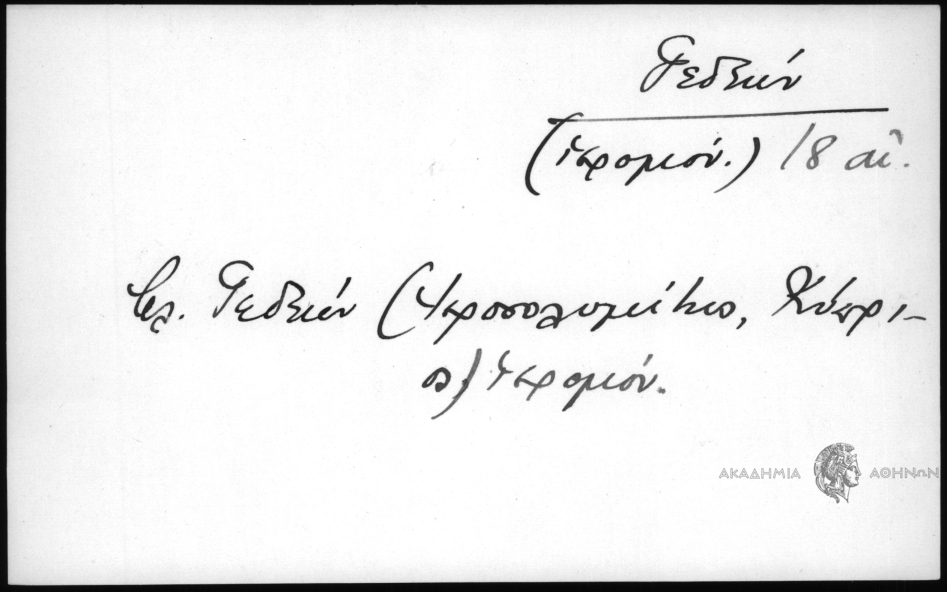 Γεδεών
(ἱερομόν.) 18 αἰ.
Βλ. Γεδεών (Ἱεροσολυμίτης, Κύπρι-
ος) ἱερομόν.
ΑΚΑΔΗΜΙΑ ΑΘΗΝΩΝ